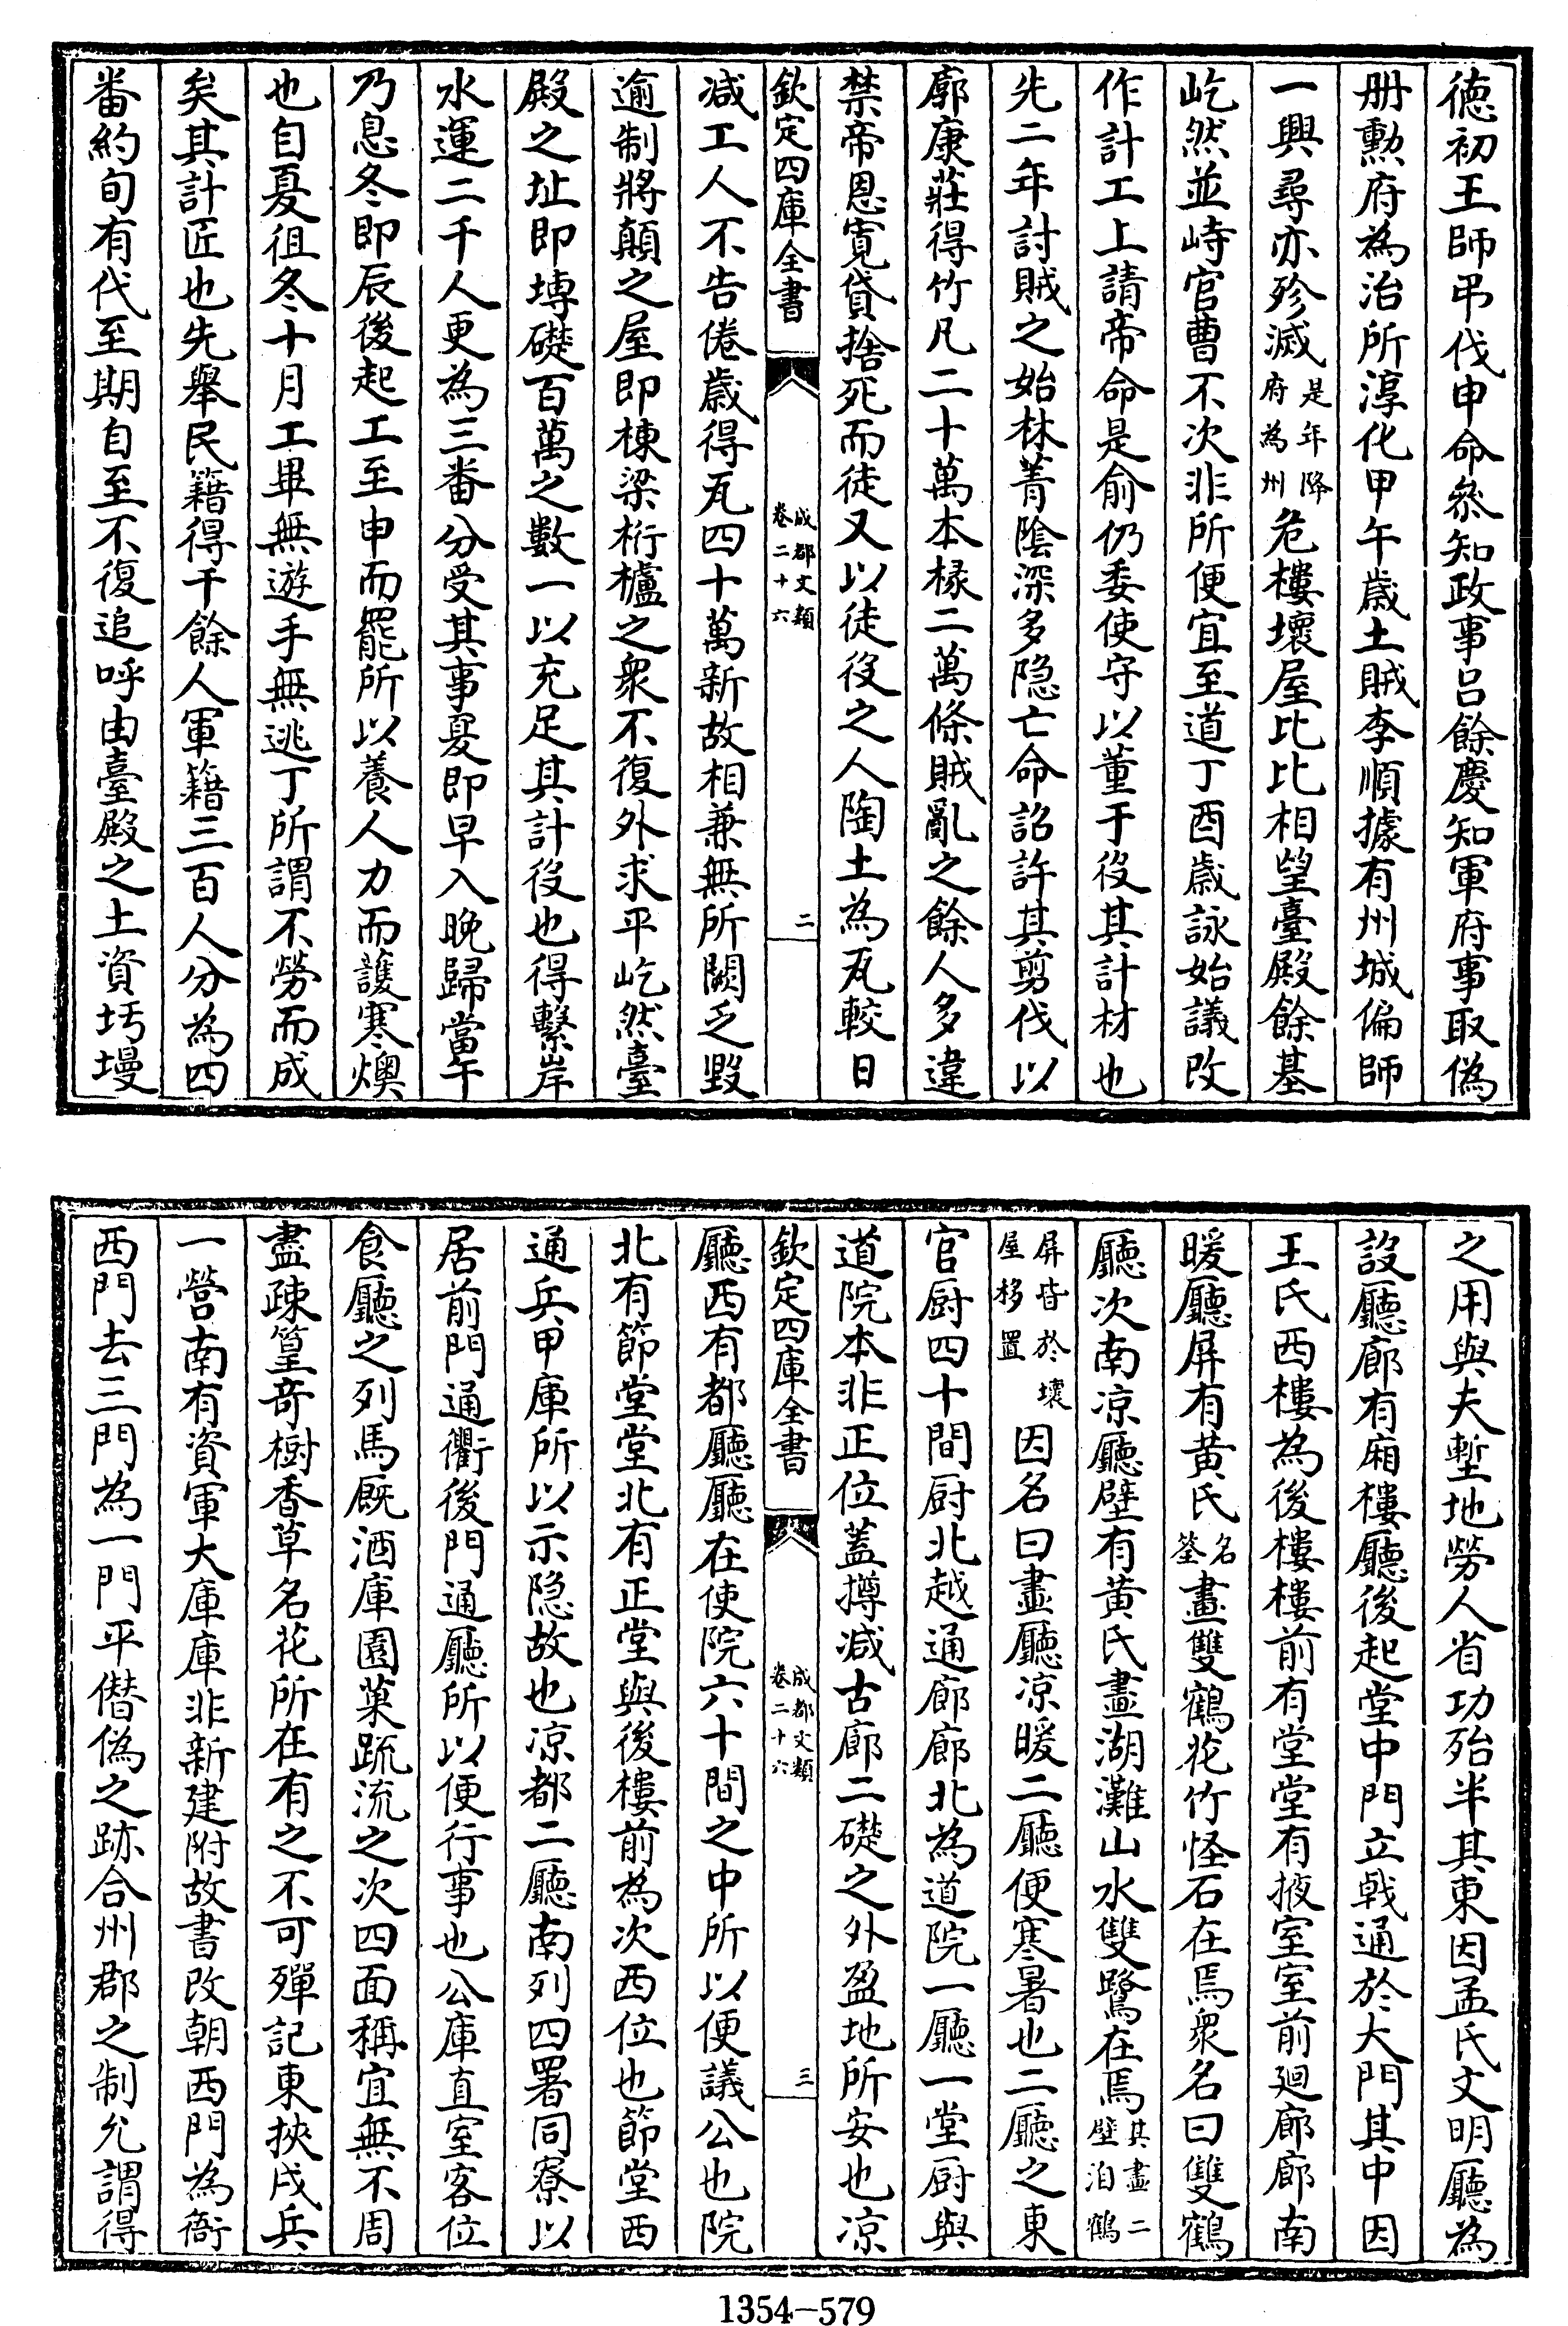 德初王師弔伐申命叅知政事吕餘慶知軍府事取偽
册勲府為治所淳化甲午歳土賊李順據有州城偏師
一興尋亦殄滅是年降府為州危樓壊屋比比相望臺殿餘基
屹然並峙官曹不次非所便宜至道丁酉歳詠始議改
作計工上請帝命是俞仍委使守以董于役其計材也
先二年討賊之始林菁陰深多隐亡命詔許其剪伐以
廓康莊得竹凡二十萬本椽二萬條賊亂之餘人多違
禁帝恩寛貸捨死而徒又以徒役之人陶土為瓦較日
欽定四庫全書
成都文類
卷二十六
二
减工人不告倦歳得瓦四十萬新故相兼無所闕乏毁
逾制將顛之屋即棟梁桁櫨之衆不復外求平屹然臺
殿之址即塼礎百萬之數一以充足其計役也得繫岸
水運二千人更為三番分受其事夏即早入晚歸當午
乃息冬即辰後起工至申而罷所以養人力而護寒燠
也自夏徂冬十月工畢無遊手無逃丁所謂不勞而成
矣其計匠也先舉民籍得千餘人軍籍三百人分為四
番約旬有代至期自至不復追呼由臺殿之土資圬墁
之用與夫塹地勞人省功殆半其東因孟氏文明廳為
設廳廊有廂樓廳後起堂中門立戟通於大門其中因
王氏西樓為後樓樓前有堂堂有掖室室前廻廊廊南
暖廳屏有黄氏名筌畫雙鶴花竹怪石在焉衆名曰雙鶴
廳次南凉廳壁有黄氏畫湖灘山水雙鷺在焉其畫二壁洎鶴
屏皆於壊屋移置因名曰畫廳凉暖二廳便寒暑也二廳之東
官厨四十間厨北越通廊廊北為道院一廳一堂厨與
道院本非正位蓋撙减古廊二礎之外盈地所安也凉
欽定四庫全書
成都文類
卷二十六
三
廳西有都廳廳在使院六十間之中所以便議公也院
北有節堂堂北有正堂與後樓前為次西位也節堂西
通兵甲庫所以示隐故也凉都二廳南列四署同寮以
居前門通衢後門通廳所以便行事也公庫直室客位
食廳之列馬厩酒庫園菓䟽流之次四面稱宜無不周
盡疎篁奇樹香草名花所在有之不可殫記東挾戍兵
一營南有資軍大庫庫非新建附故書改朝西門為衙
西門去三門為一門平僣偽之跡合州郡之制允謂得
1354-579